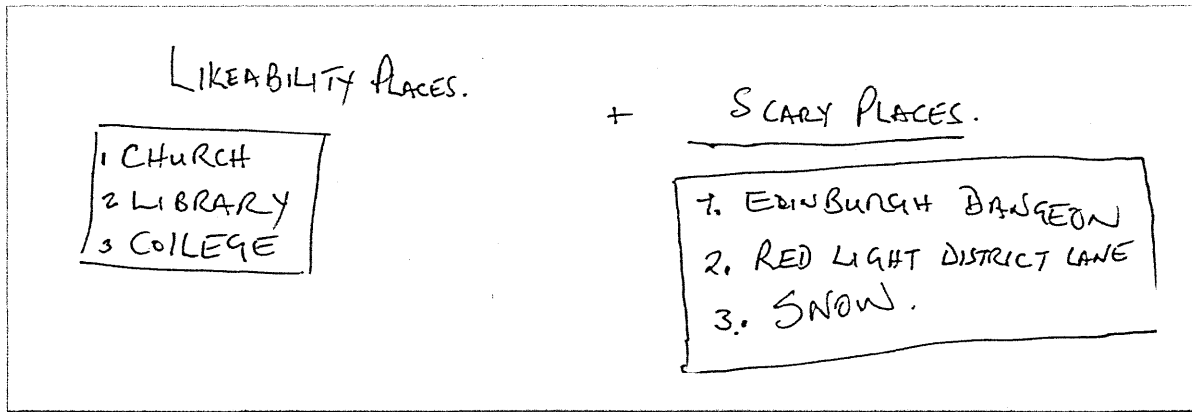 LIKEABILITY PLACES.
1 CHURCH
2 LIBRARY
3 COLLEGE
+ SCARY PLACES.
1. EDINBURGH DANGEON
2. RED LIGHT DISTRICT LANE
3. SNOW.